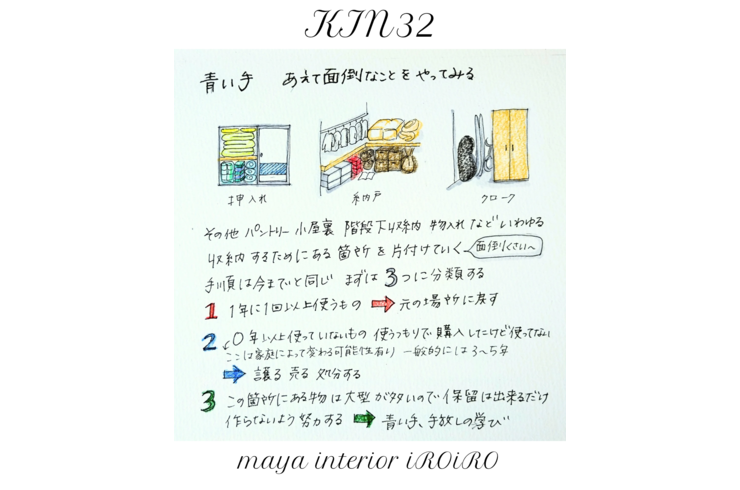 KIN32
青い手 あえて面倒なことをやってみる
押入れ 納戸 クローク
その他 パントリー 小屋裏 階段下収納 物入れ などいわゆる
収納するためにある箇所を片付けていく 面倒くさい〜
手順は今までと同じ まずは3つに分類する
1 1年に1回以上使うもの → 元の場所に戻す
2 ○年以上使っていないもの 使うつもりで購入したけど使ってない
ここは家庭によって変わる可能性有り 一般的には3〜5年
→ 譲る 売る 処分する
3 この箇所にある物は大型が多いので保留は出来るだけ
作らないよう努力する → 青い手、手放しの学び
maya interior iROiRO